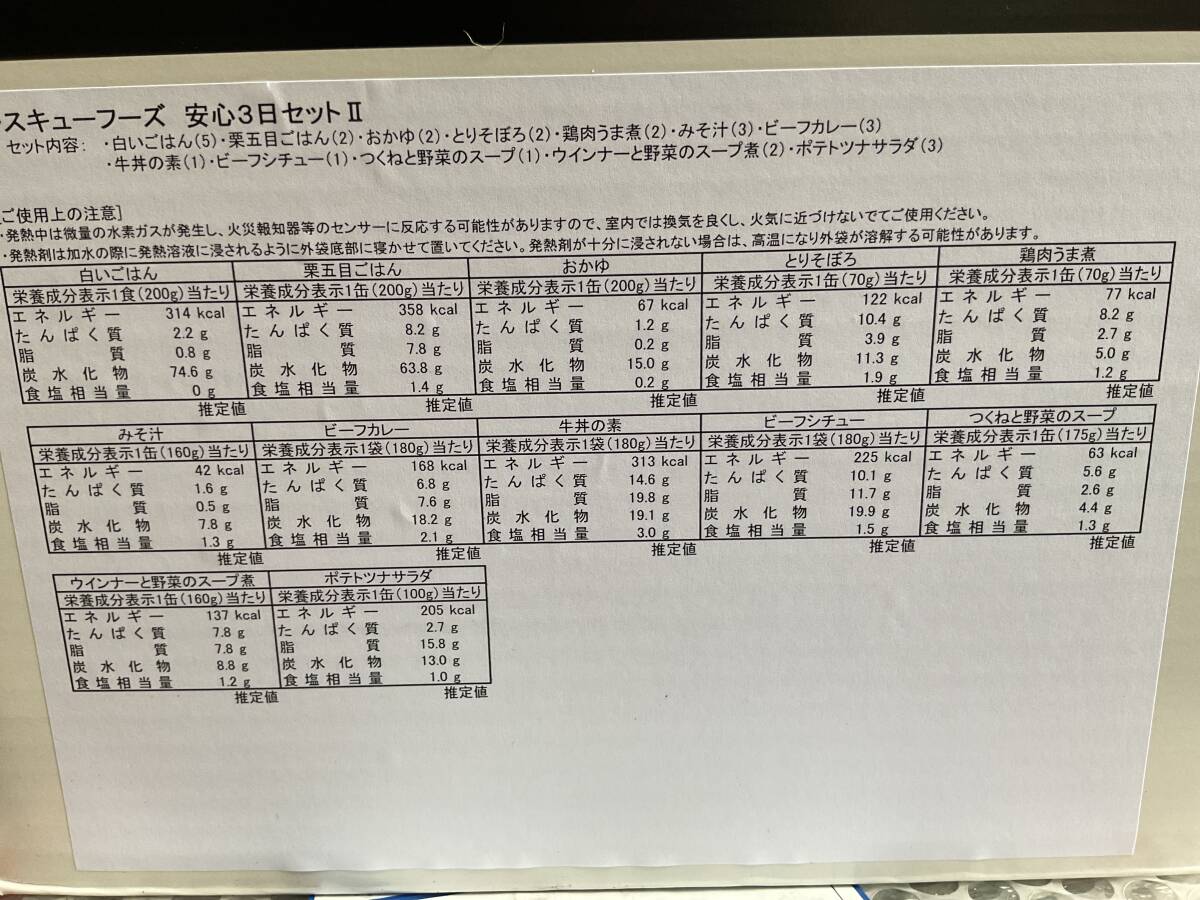 スキューフーズ 安心3日セットⅡ
セット内容： ・白いごはん(5)・栗五目ごはん(2)・おかゆ(2)・とりそぼろ(2)・鶏肉うま煮(2)・みそ汁(3)・ビーフカレー(3)
・牛丼の素(1)・ビーフシチュー(1)・つくねと野菜のスープ(1)・ウインナーと野菜のスープ煮(2)・ポテトツナサラダ(3)
ご使用上の注意]
・発熱中は微量の水素ガスが発生し、火災報知器等のセンサーに反応する可能性がありますので、室内では換気を良くし、火気に近づけないでてご使用ください。
・発熱剤は加水の際に発熱溶液に浸されるように外袋底部に寝かせて置いてください。発熱剤が十分に浸されない場合は、高温になり外袋が溶解する可能性があります。
白いごはん
栄養成分表示1食(200g)当たり
エネルギー 314 kcal
たんぱく質 2.2 g
脂質 0.8 g
炭水化物 74.6 g
食塩相当量 0 g
推定値
栗五目ごはん
栄養成分表示1缶(200g)当たり
エネルギー 358 kcal
たんぱく質 8.2 g
脂質 7.8 g
炭水化物 63.8 g
食塩相当量 1.4 g
推定値
おかゆ
栄養成分表示1缶(200g)当たり
エネルギー 67 kcal
たんぱく質 1.2 g
脂質 0.2 g
炭水化物 15.0 g
食塩相当量 0.2 g
推定値
とりそぼろ
栄養成分表示1缶(70g)当たり
エネルギー 122 kcal
たんぱく質 10.4 g
脂質 3.9 g
炭水化物 11.3 g
食塩相当量 1.9 g
推定値
鶏肉うま煮
栄養成分表示1缶(70g)当たり
エネルギー 77 kcal
たんぱく質 8.2 g
脂質 2.7 g
炭水化物 5.0 g
食塩相当量 1.2 g
推定値
みそ汁
栄養成分表示1缶(160g)当たり
エネルギー 42 kcal
たんぱく質 1.6 g
脂質 0.5 g
炭水化物 7.8 g
食塩相当量 1.3 g
推定値
ビーフカレー
栄養成分表示1袋(180g)当たり
エネルギー 168 kcal
たんぱく質 6.8 g
脂質 7.6 g
炭水化物 18.2 g
食塩相当量 2.1 g
推定値
牛丼の素
栄養成分表示1袋(180g)当たり
エネルギー 313 kcal
たんぱく質 14.6 g
脂質 19.8 g
炭水化物 19.1 g
食塩相当量 3.0 g
推定値
ビーフシチュー
栄養成分表示1袋(180g)当たり
エネルギー 225 kcal
たんぱく質 10.1 g
脂質 11.7 g
炭水化物 19.9 g
食塩相当量 1.5 g
推定値
つくねと野菜のスープ
栄養成分表示1缶(175g)当たり
エネルギー 63 kcal
たんぱく質 5.6 g
脂質 2.6 g
炭水化物 4.4 g
食塩相当量 1.3 g
推定値
ウインナーと野菜のスープ煮
栄養成分表示1缶(160g)当たり
エネルギー 137 kcal
たんぱく質 7.8 g
脂質 7.8 g
炭水化物 8.8 g
食塩相当量 1.2 g
推定値
ポテトツナサラダ
栄養成分表示1缶(100g)当たり
エネルギー 205 kcal
たんぱく質 2.7 g
脂質 15.8 g
炭水化物 13.0 g
食塩相当量 1.0 g
推定値